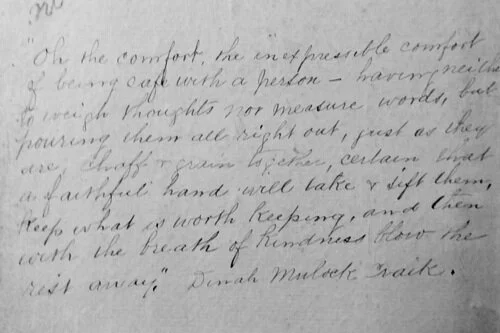 "Oh the comfort, the inexpressible comfort
of being safe with a person — having neither
to weigh thoughts nor measure words, but
pouring them all right out, just as they
are, chaff & grain together, certain that
a faithful hand will take & sift them,
keep what is worth keeping, and then
with the breath of kindness blow the
rest away." Dinah Mulock Craik.